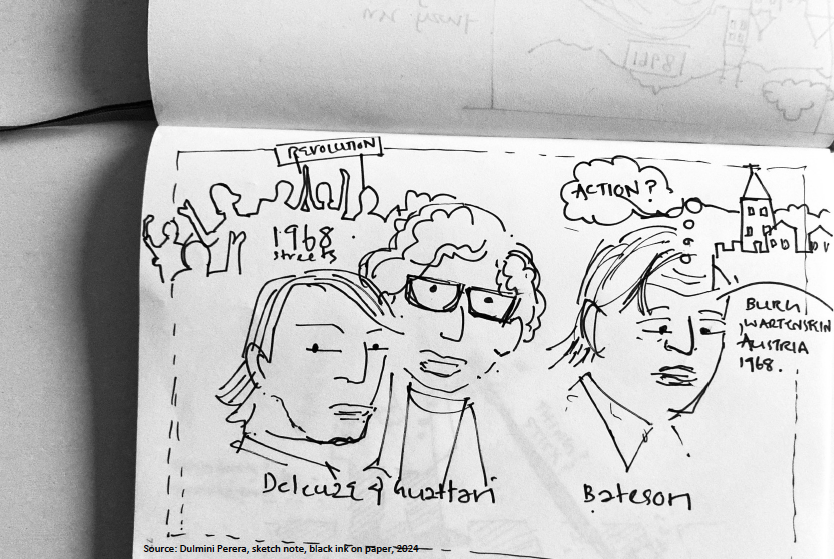 REVOLUTION
1968
streets
ACTION?
BURG
WARTENSTEIN
AUSTRIA
1968.
Deleuze & Guattari
Bateson
Source: Dulmini Perera, sketch note, black ink on paper, 2024